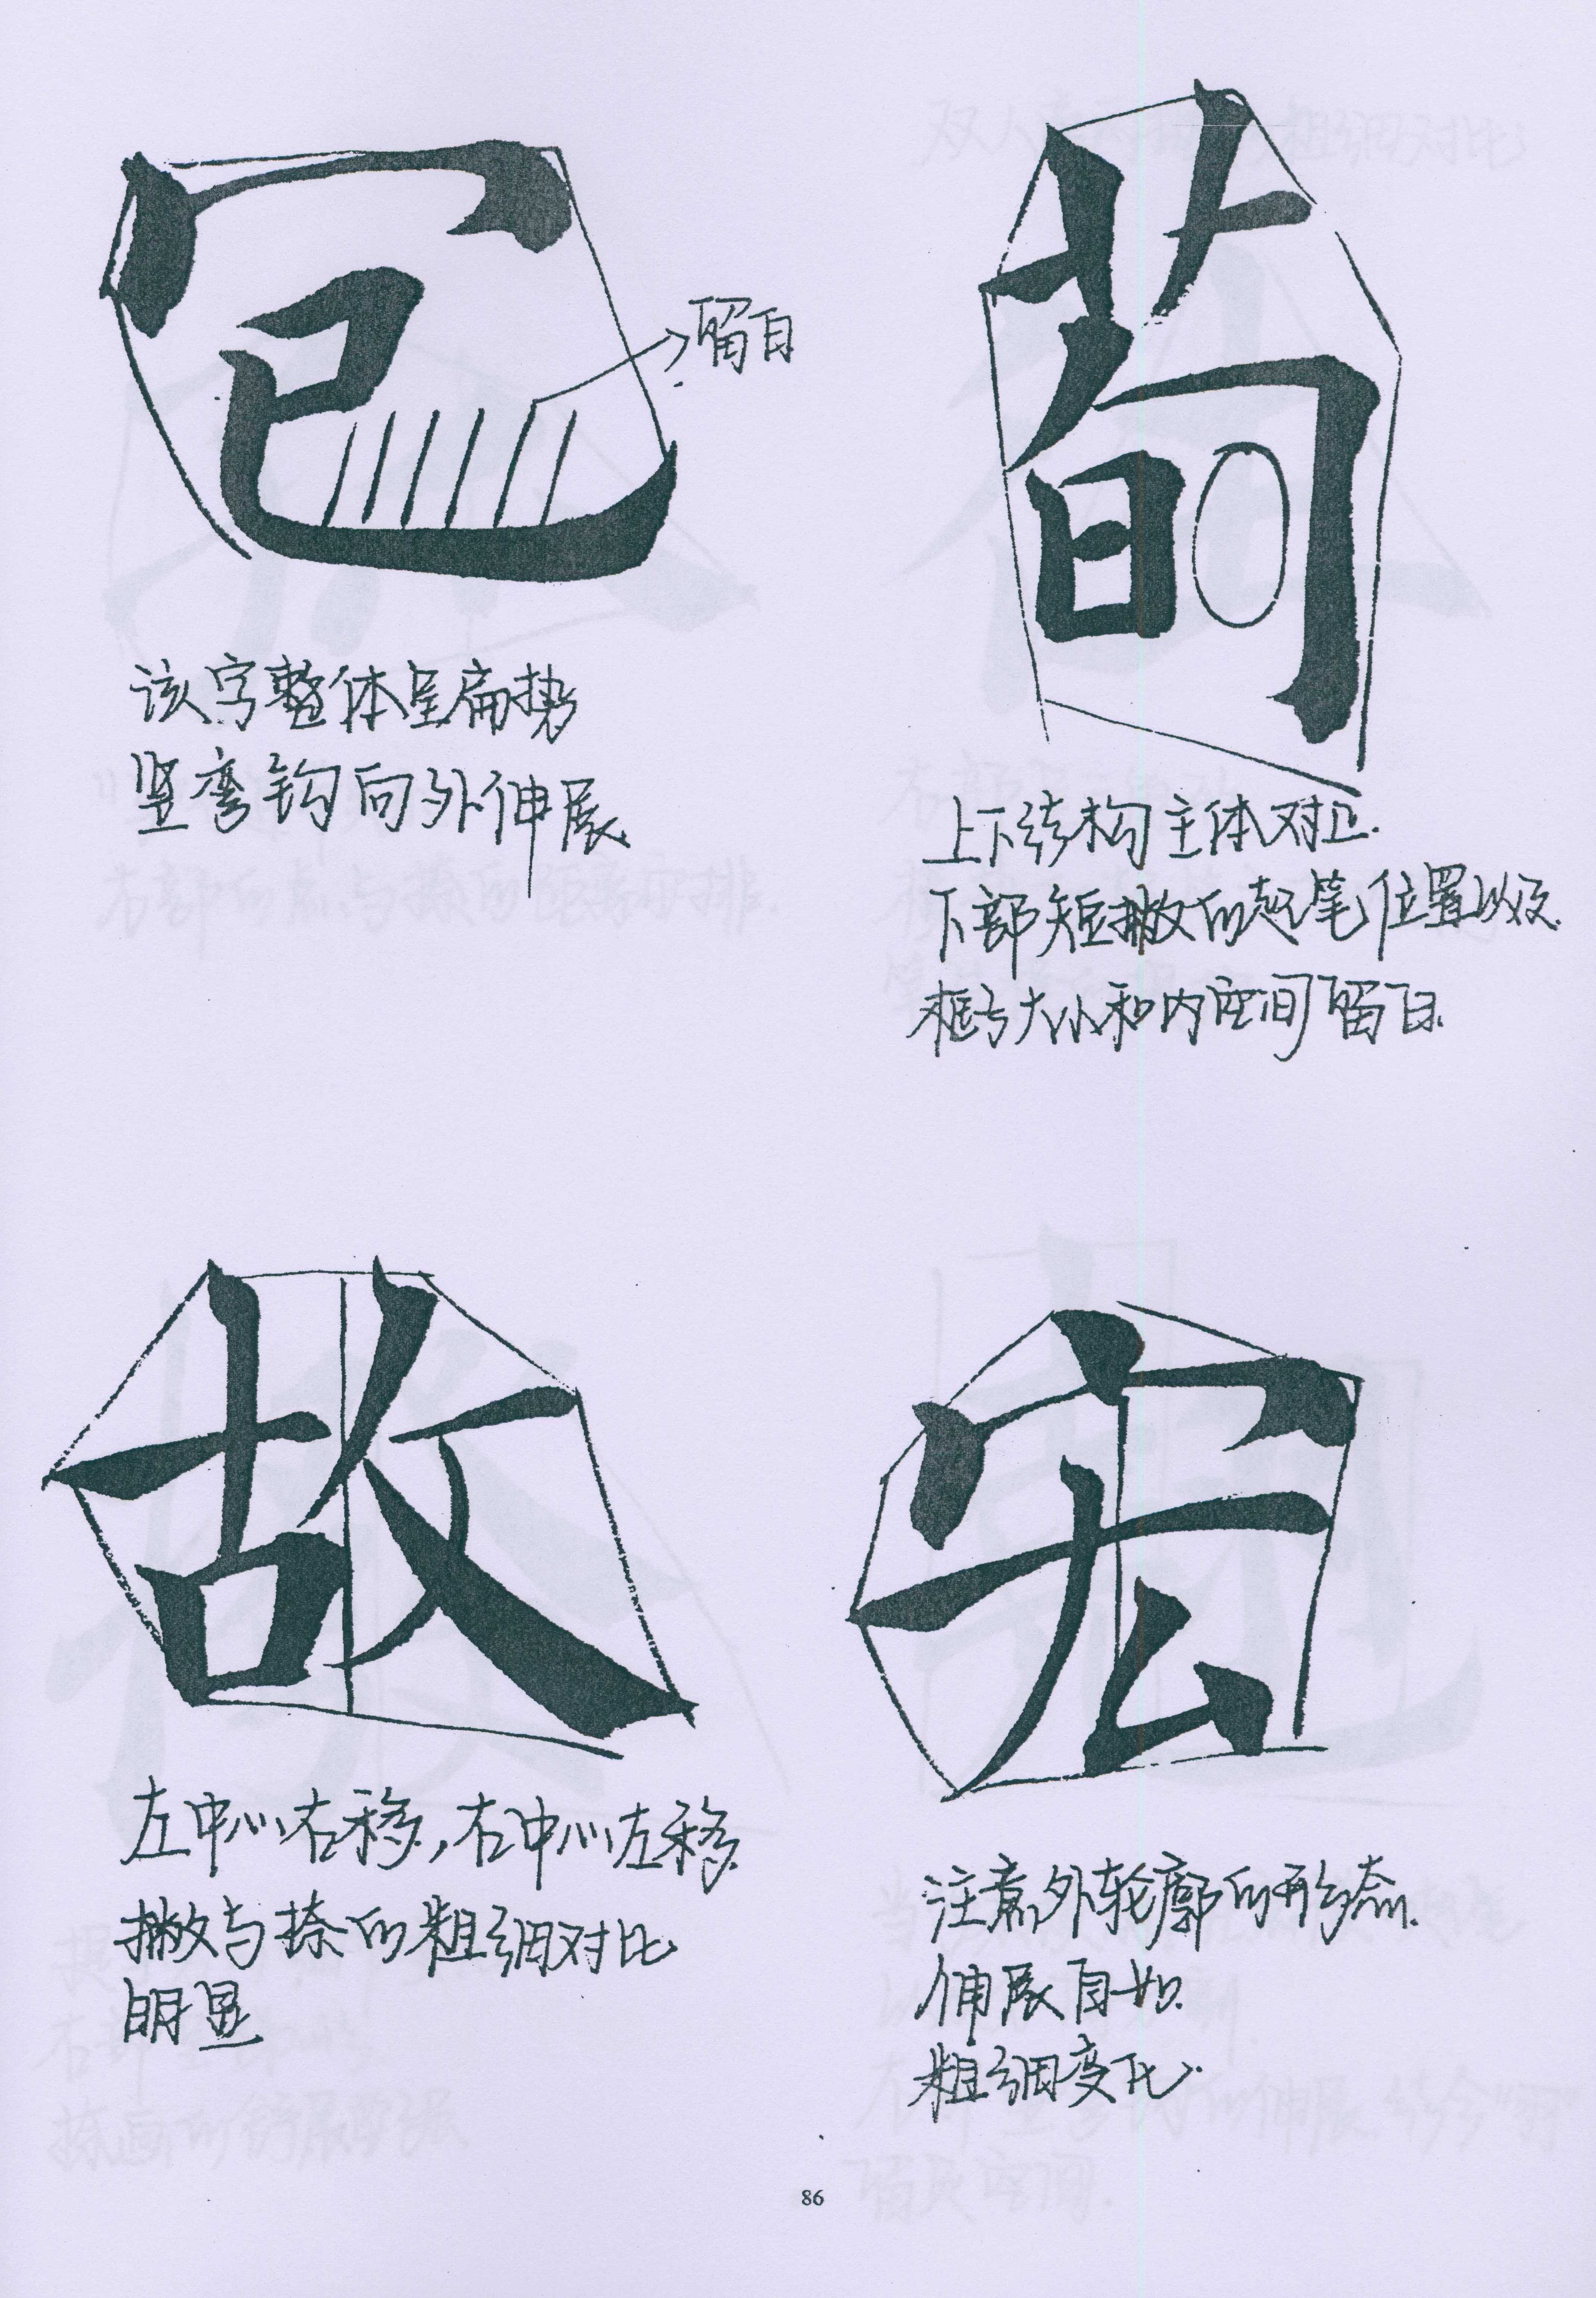 留白
荀
该字整体呈扁势
竖弯钩向外伸展
上下结构主体对正.
下部短撇的起笔位置以及
框与大小和内空间留白.
故
宏
左中心右移,右中心左移.
撇与捺的粗细对比
明显
注意外轮廓的形态.
伸展自如.
粗细变化.
86